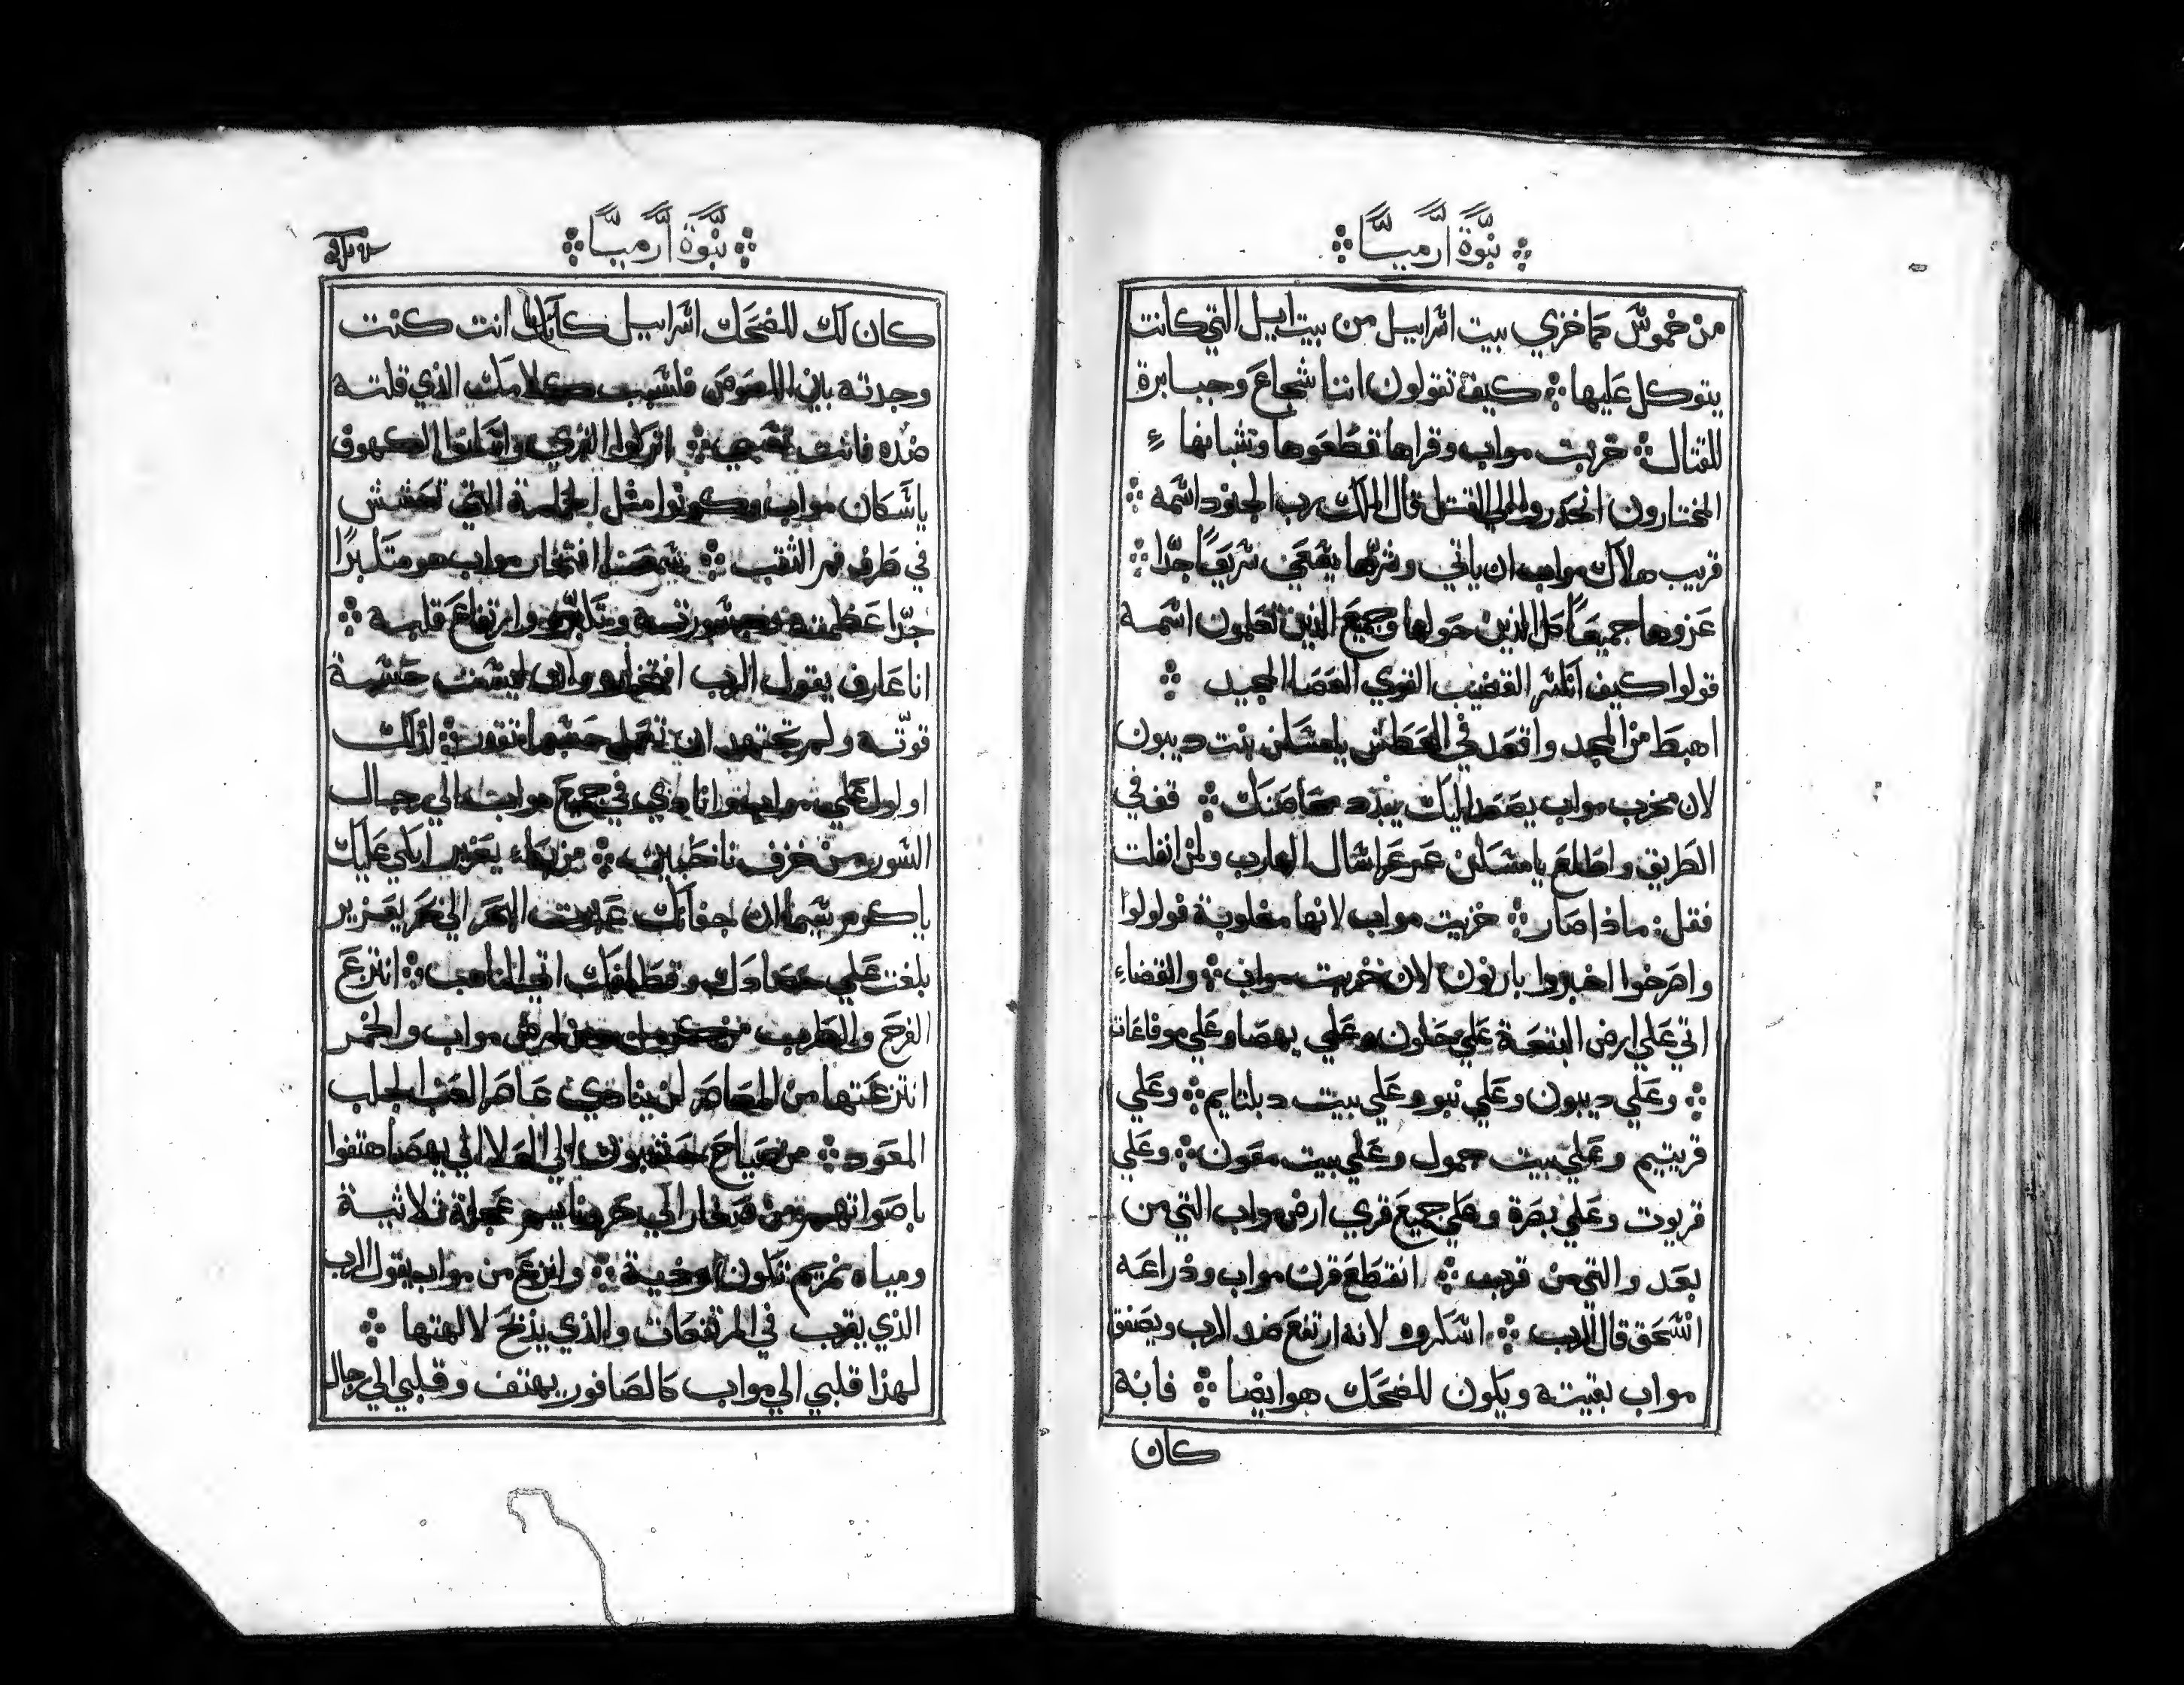 نبوة ارميا
من خموش كما خزي بيت اسراييل من بيت ايل التي كانت
يتوكل عليها كيف تقولون اننا شجاع وجبابرة
للقتال خربت مواب وقراها قطعوها وشبانها
المختارون انحدروا الي القتل قال الملك رب الجنود اسمه
قريب هلاك مواب ان ياتي وشرها يسعي سريعًا جدًا
عزوها جميعًا كل الذين حولها وجميع الذين تعلمون اسمه
قولوا كيف انكسر القضيب القوي العصا المجيد
اهبط من المجد واقعد في العطش يا مسكن بنت ديبون
لان مخرب مواب يصعد اليك يبدد محاصنك قف في
الطريق واطلع يا مسكن عرعر اسال الهارب ولمن انفلت
فقل ماذا صار خزيت مواب لانها مغلوبة ولولوا
واصرخوا اخبروا بارنون لان خربت مواب والقضاء
اتي علي ارض البقعة علي حلون وعلي يهصا وعلي موفاعات
وعلي ديبون وعلي نبو وعلي بيت دبلتايم وعلي
قريتيم وعلي بيت جمول وعلي بيت معون وعلي
قريوت وعلي بصرة وعلي جميع قري ارض مواب التي من
بعد والتي من قريب انقطع قرن مواب وذراعه
انسحق قال الرب اسكروه لانه ارتفع ضد الرب ويصفق
مواب بقيته ويكون للضحك هو ايضا فانه
كان
نبوة ارميا
كان لك للضحك اسراييل كانك انت كنت
وجدته بين اللصوص فلسبب كلامك الذي قلته
ضده فانت تسبي اتركوا القري واسكنوا الكهوف
يا سكان مواب وكونوا مثل الحمامة التي تعشش
في طرف فم الثقب سمعنا افتخار مواب هو متكبرًا
جدًا عظمته وجسورته وتكبره وارتفاع قلبه
انا عارف يقول الرب افتخاره وان ليست حسب
قوته ولم تجتهد ان تعمل حسبما تقوت لذلك
اولول علي مواب وانادي في جميع مواب الي رجال
السور من خزف ناحبين من بكاء يعزير ابكي عليك
يا كرم سبما ان جفانك عبرت البحر الي بحر يعزير
بلغت علي حصادك وقطافك اتي الناهب انتزع
الفرح والطرب من كرمل ومن ارض مواب والخمر
انتزعتها من المعاصر لن ينادي عاصر العنب الجلب
المعود من صياح حشبون الي العلا الي يهصا هتفوا
باصواتهم من صغار الي حرونايم عجلة ثلاثية
ومياه نمريم تكون ردية وانزع من مواب يقول الرب
الذي يقرب في المرتفعات والذي يذبح لالهتها
لهذا قلبي الي مواب كالصافور يهتف وقلبي الي رجال